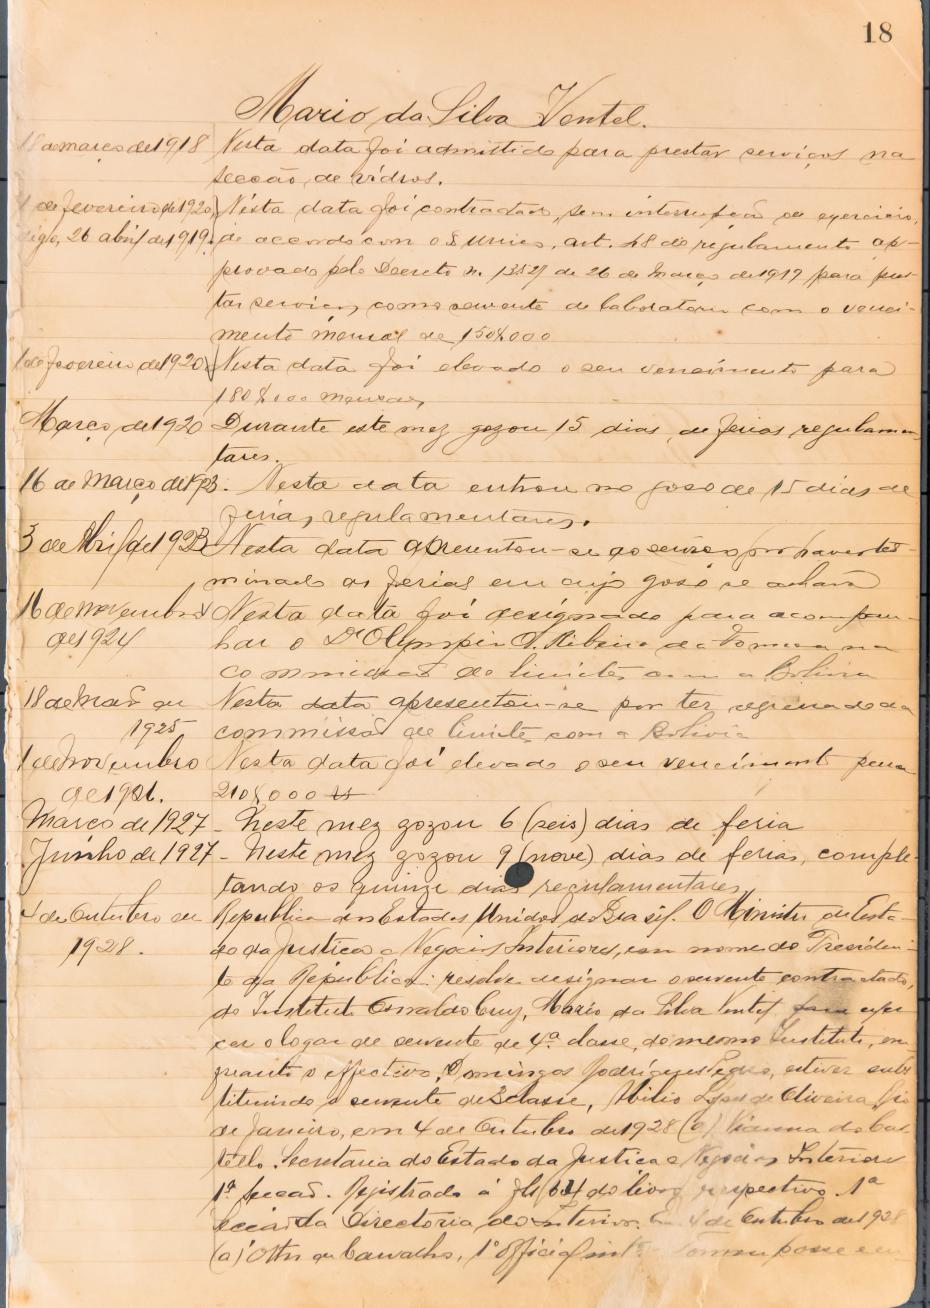 18
Mario da Silva Ventel.
março de 1918 Nesta data foi admittido para prestar serviços na
secção de vidros.
de fevereiro de 1920, Nésta data foi contractado, sem interrupção de exercicio,
digo, 26 abril de 1919. de accordo com o § unico, art. 48 do regulamento ap-
provado pelo Decreto n. de 26 de Março de 1917 para pres-
tar serviços como servente de laboratorio com o venci-
mento mensal de 150$000
1 de fevereiro de 1920 Nesta data foi elevado o seu vencimento para
180$000 mensaes
Março de 1920 Durante este mez gozou 15 dias de ferias regulamen-
tares.
16 de Março de 1923. Nesta data entrou no goso de 15 dias de
ferias regulamentares.
3 de Abril de 1923 Nesta data apresentou-se ao serviço por haver ter-
minado as ferias em cujo goso se achava
16 de novembro Nesta data foi designado para acompa-
de 1924 nhar o Dr Olympio Ribeiro da Fonseca na
commissão de limites com a Bolivia
18 de Nesta data apresentou-se por ter regressado da
1925 commissão de limites com a Bolivia
1 de novembro Nesta data foi elevado o seu vencimento para
de 1926. 210$000
Março de 1927 - Neste mez gozou 6 (seis) dias de feria
Junho de 1927 - Neste mez gozou 9 (nove) dias de ferias, comple-
tando os quinze dias regulamentares
4 de Outubro de Republica dos Estados Unidos do Brasil. O Ministro de Esta-
1928. do da Justiça e Negocios Interiores, em nome do Presiden-
te da Republica: resolve designar o servente contractado,
do Instituto Oswaldo Cruz, Mario da Silva Ventel para exer-
cer o logar de servente de 4ª classe, do mesmo Instituto, en-
quanto o effectivo, Domingos Rodrigues, estiver subs
tituindo o servente de 3 classe, Abilio de Oliveira Rio
de Janeiro, em 4 de Outubro de 1928 (a) Vianna do Cas-
tello. Secretaria do Estado da Justiça e Negocios Interiores
1ª Secção. Registrado á fls do livro respectivo. 1ª
Secção da Directoria do Interior. Em 4 de Outubro de 1928
(a) Otto de Carvalho, 1º Official int Tomou posse em